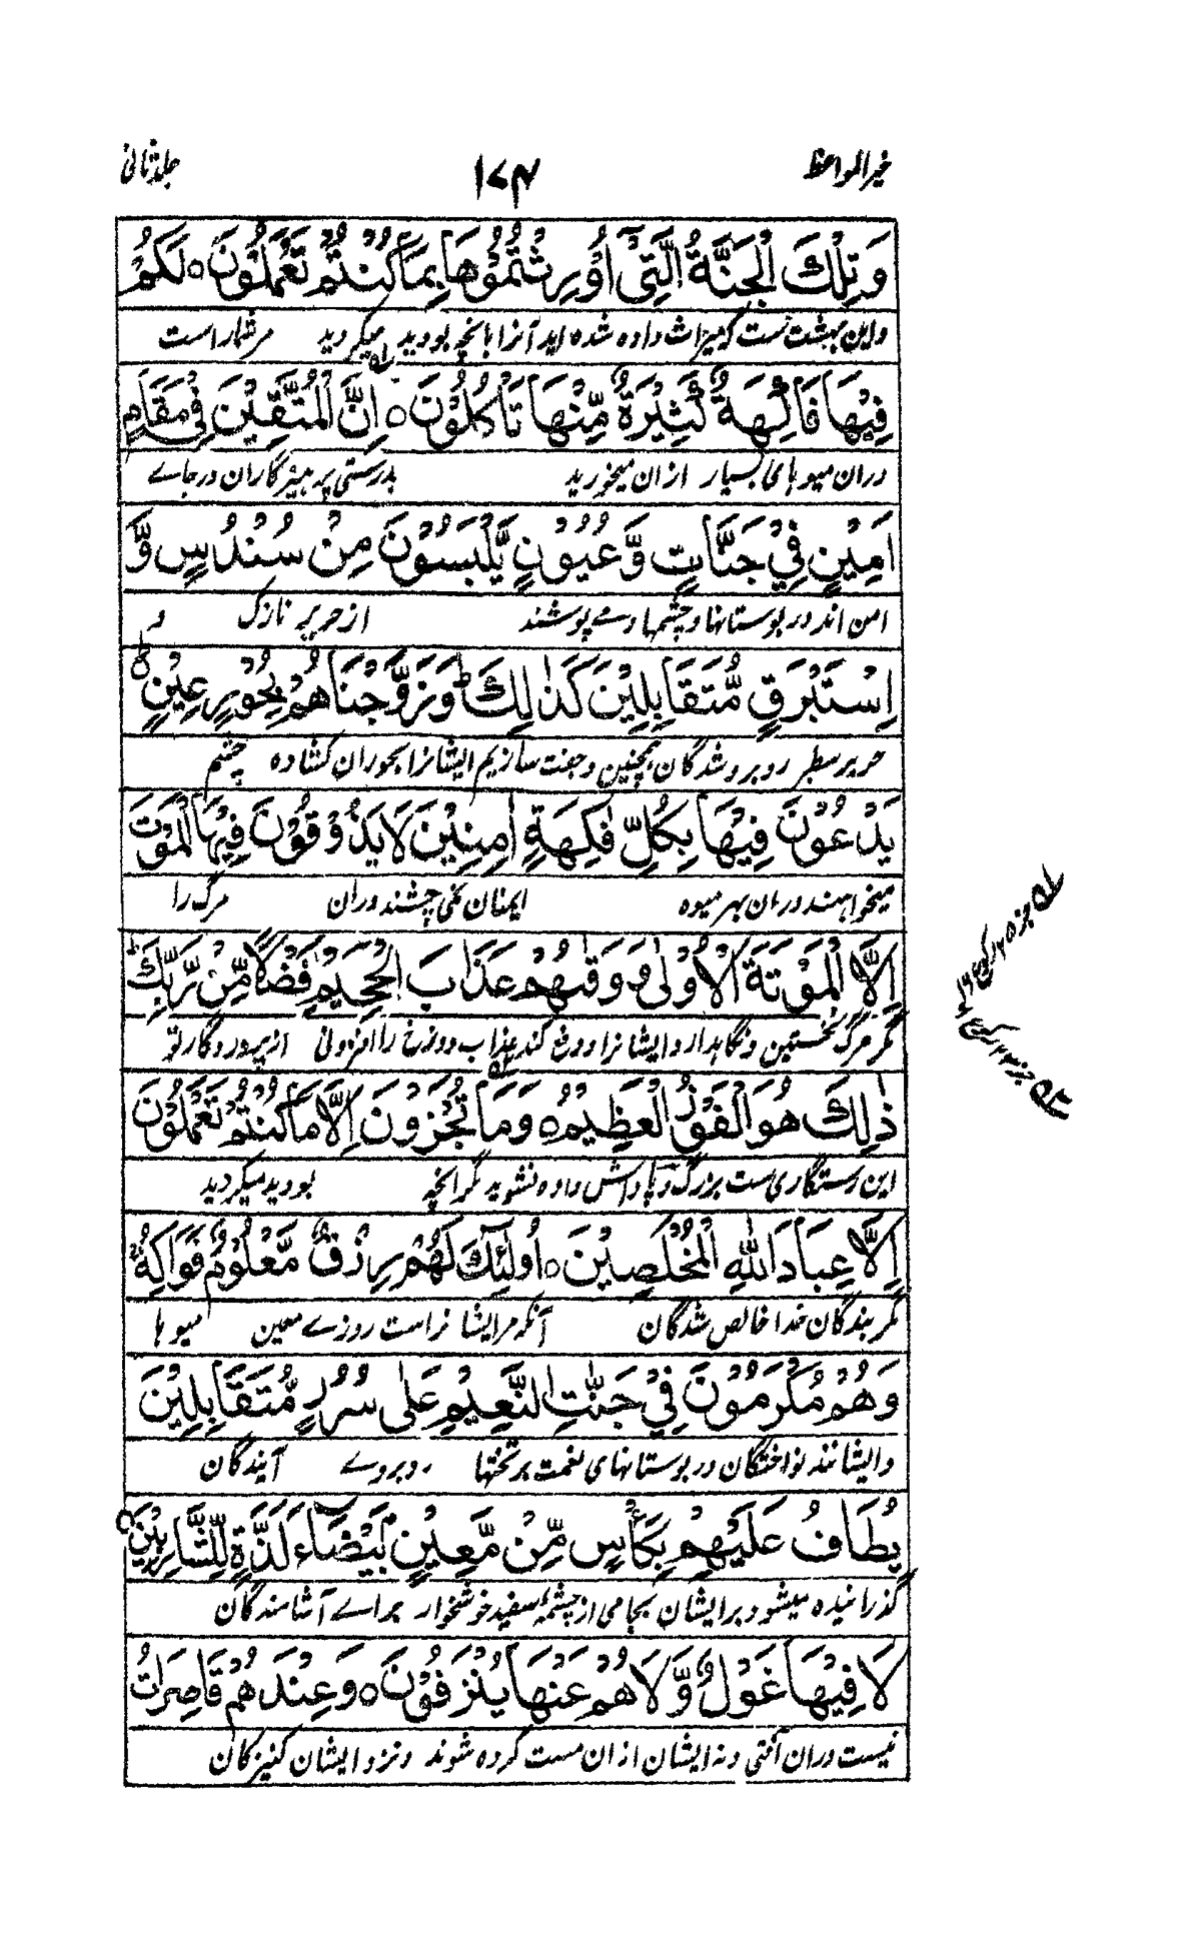 خیر المواعظ ۱۷۴ جلد ثانی
وَتِلْكَ الْجَنَّةُ الَّتِیْۤ اُوْرِثْتُمُوْهَا بِمَا كُنْتُمْ تَعْمَلُوْنَ ○ لَكُمْ
واین بهشت ست که میراث داده شده اید آنرا بانچه بودید میکردید مرشمار است
فِیْهَا فَاكِهَةٌ كَثِیْرَةٌ مِّنْهَا تَاْكُلُوْنَ ○ اِنَّ الْمُتَّقِیْنَ فِیْ مَقَامٍ
دران میوہای بسیار ازان میخورید بدرستی پرہیزگاران درجاے
اَمِیْنٍ فِیْ جَنَّاتٍ وَّعُیُوْنٍ یَّلْبَسُوْنَ مِنْ سُنْدُسٍ وَّ
امن اند در بوستانها وچشمها مے پوشند از حریر نازک و
اِسْتَبْرَقٍ مُّتَقَابِلِیْنَ كَذٰلِكَ وَزَوَّجْنَاهُمْ بِحُوْرٍ عِیْنٍ
حریر سطبر روبروشدگان ہمچنین وجفت سازیم ایشانرا بحوران کشادہ چشم
یَدْعُوْنَ فِیْهَا بِكُلِّ فٰكِهَةٍ اٰمِنِیْنَ لَا یَذُوْقُوْنَ فِیْهَا الْمَوْتَ
میخواہند دران بہر میوہ ایمنان نمی چشند دران مرگ را
اِلَّا الْمَوْتَةَ الْاُوْلٰی وَوَقٰىهُمْ عَذَابَ الْجَحِیْمِ فَضْلًا مِّنْ رَّبِّكَ
مگر مرگ نخستین ونگاہدارد ایشانرا عذاب دوزخ را افزونی از پروردگار تو
ذٰلِكَ هُوَ الْفَوْزُ الْعَظِیْمُ ○ وَمَا تُجْزَوْنَ اِلَّا مَا كُنْتُمْ تَعْمَلُوْنَ
این رستگاری ست بزرگ وپاداش دادہ نشوید مگر انچہ بودید میکردید
اِلَّا عِبَادَ اللّٰهِ الْمُخْلَصِیْنَ ○ اُولٰٓئِكَ لَهُمْ رِزْقٌ مَّعْلُوْمٌ فَوَاكِهُ
مگر بندگان خدا خالص شدگان آنگہ مرایشانراست روزے معین میوہا
وَهُمْ مُكْرَمُوْنَ فِیْ جَنّٰتِ النَّعِیْمِ عَلٰی سُرُرٍ مُّتَقَابِلِیْنَ
وایشانند نواختگان در بوستانهای نعمت برتختها روبروے آیندگان
یُطَافُ عَلَیْهِمْ بِكَاْسٍ مِّنْ مَّعِیْنٍ بَیْضَآءَ لَذَّةٍ لِّلشَّارِبِیْنَ
گذرانیدہ میشود برایشان بجامی از چشمۂ سفید خوشخوار براے آشامندگان
لَا فِیْهَا غَوْلٌ وَّلَا هُمْ عَنْهَا یُنْزَفُوْنَ ○ وَعِنْدَهُمْ قَاصِرَاتُ
نیست دران آفتی ونہ ایشان ازان مست کردہ شوند ونزد ایشان کنیزکان